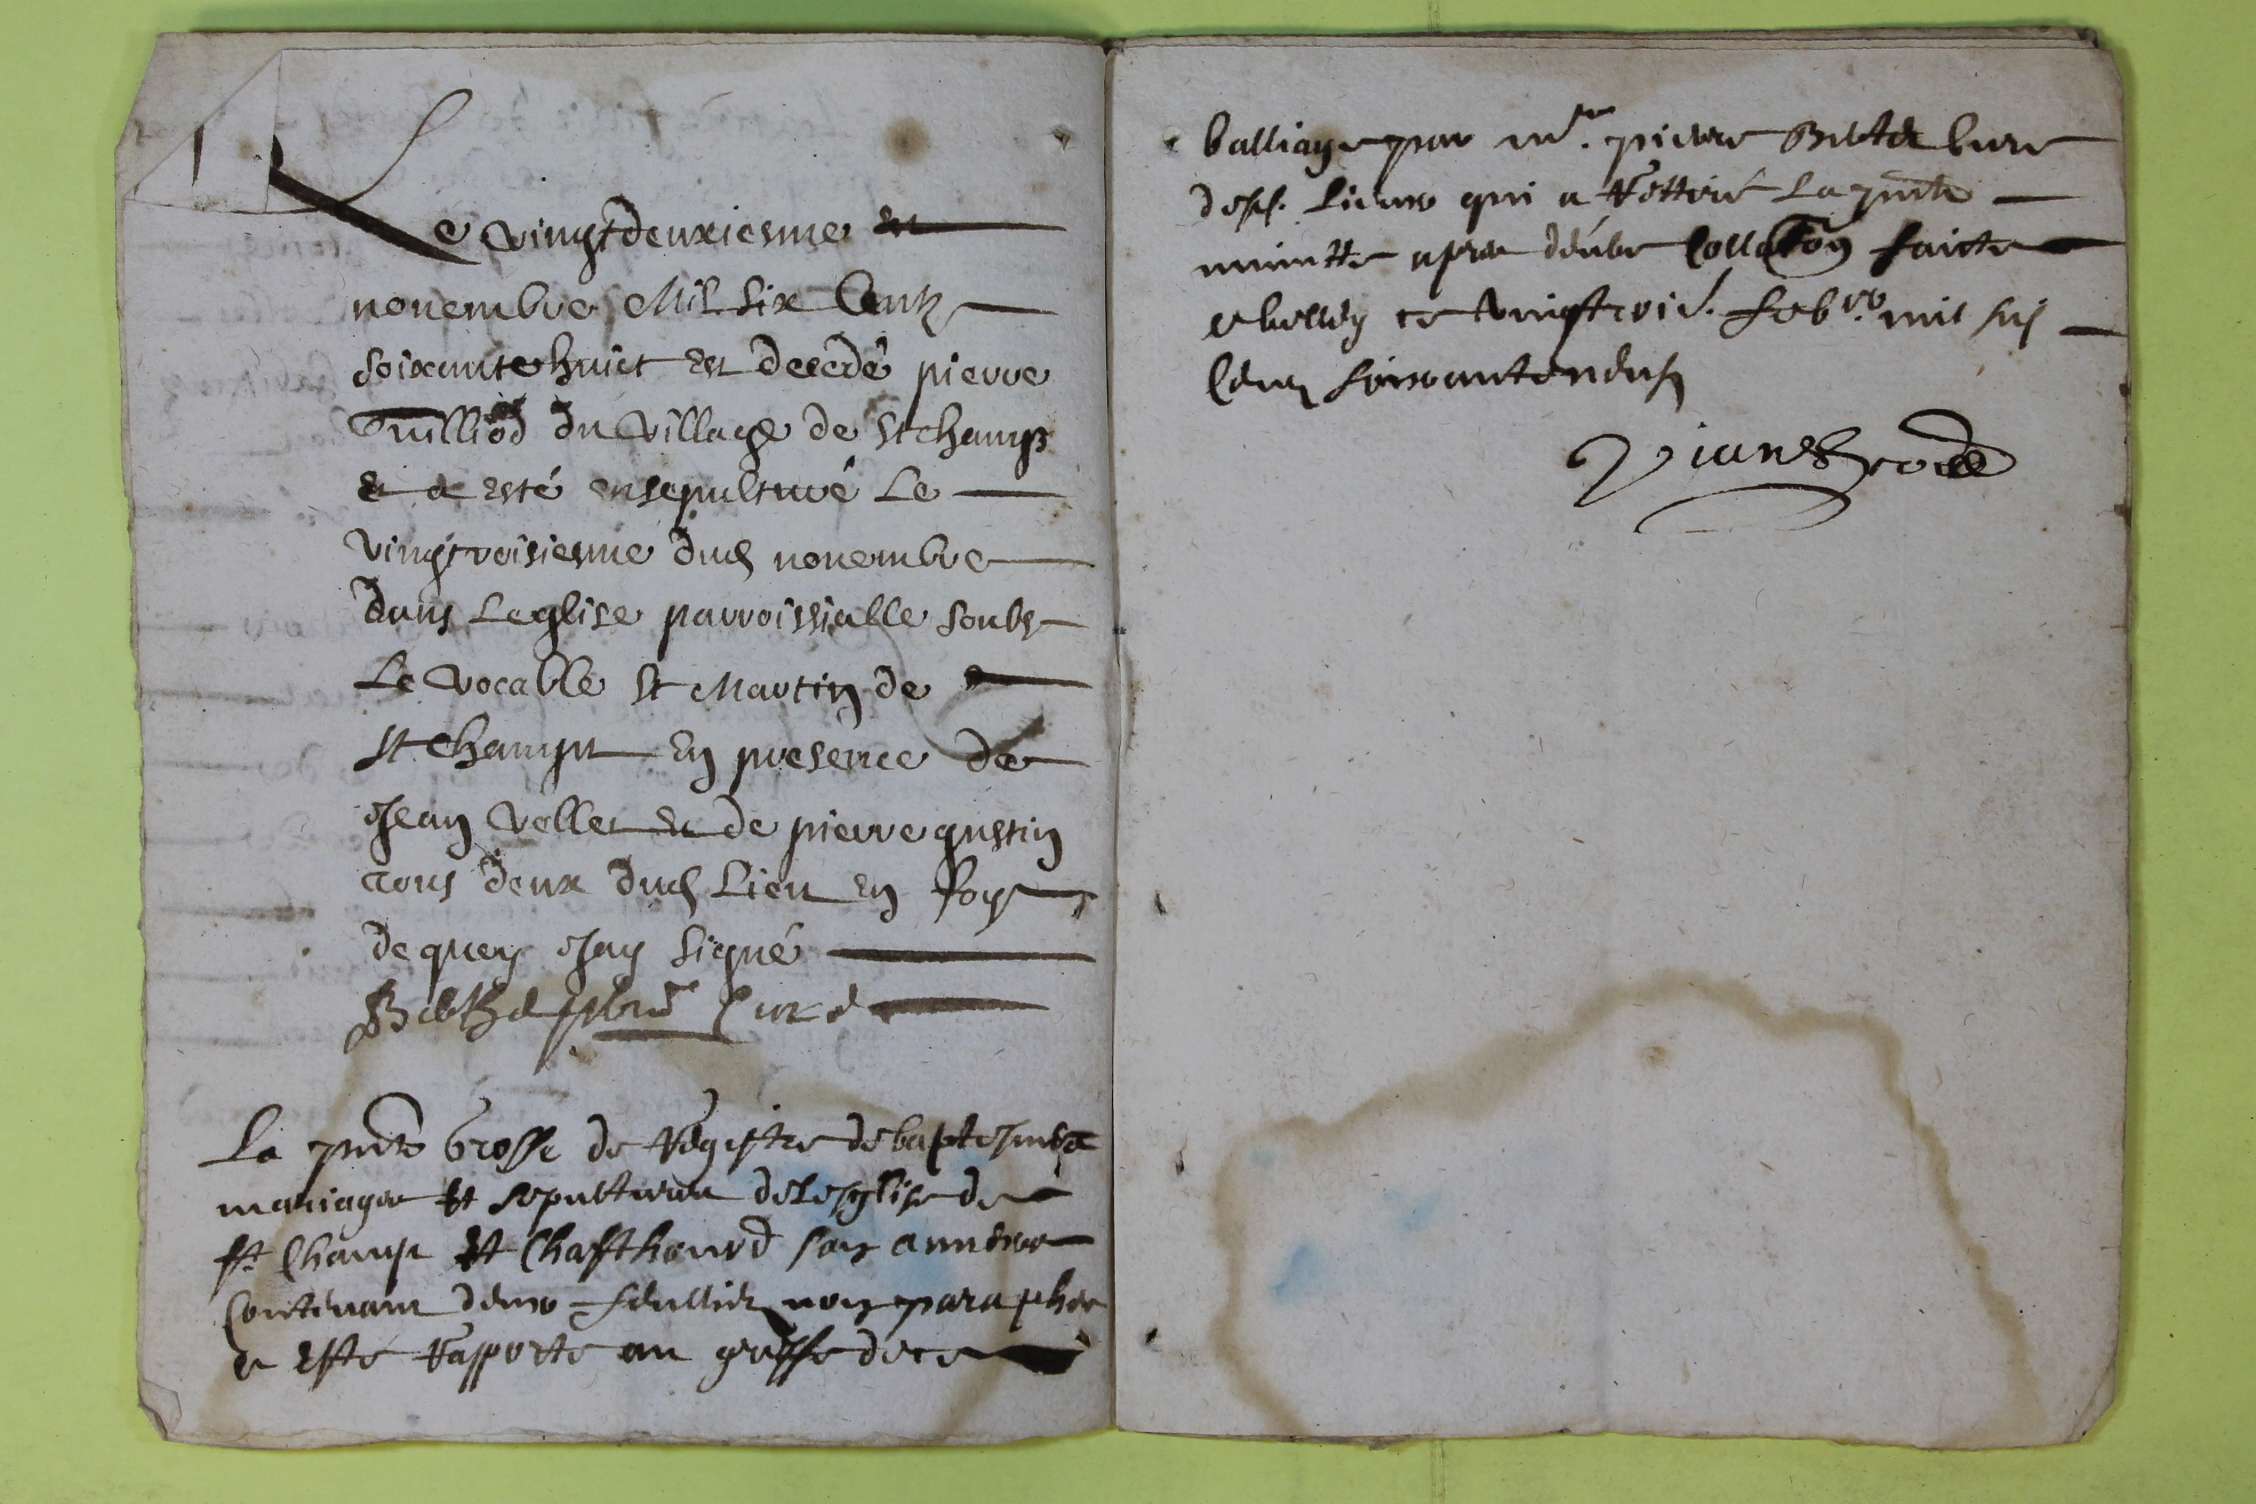 Le vingtdeuxiesme
novembre Mil six Centz
soixante huict est decedé pierre
Tuilliod du village de st champ
et a esté ensepulturé Le
vingtroisiesme dud novembre
dans Leglise parroissialle soubz
Le vocable st Martin de
st champt en presence de
Jean vellet et de pierre gustin
tous deux dud Lieu en foy
de quoy Jay signé
Curé
La pnte Grosse de Registre de baptesmes
mariages et sepultures de Lesglise de
st Champt et Chasthonod son annexe
Contenant deux feulliet non paraphes
a esté Rapporté au greffe de ce
balliage par mre. pierre Curé
desd. Lieux qui a Rettiré La pnte
minutte apres deube Collaon faicte
a belley ce vingtrois. febvr. mil six
Centz soixante neufz